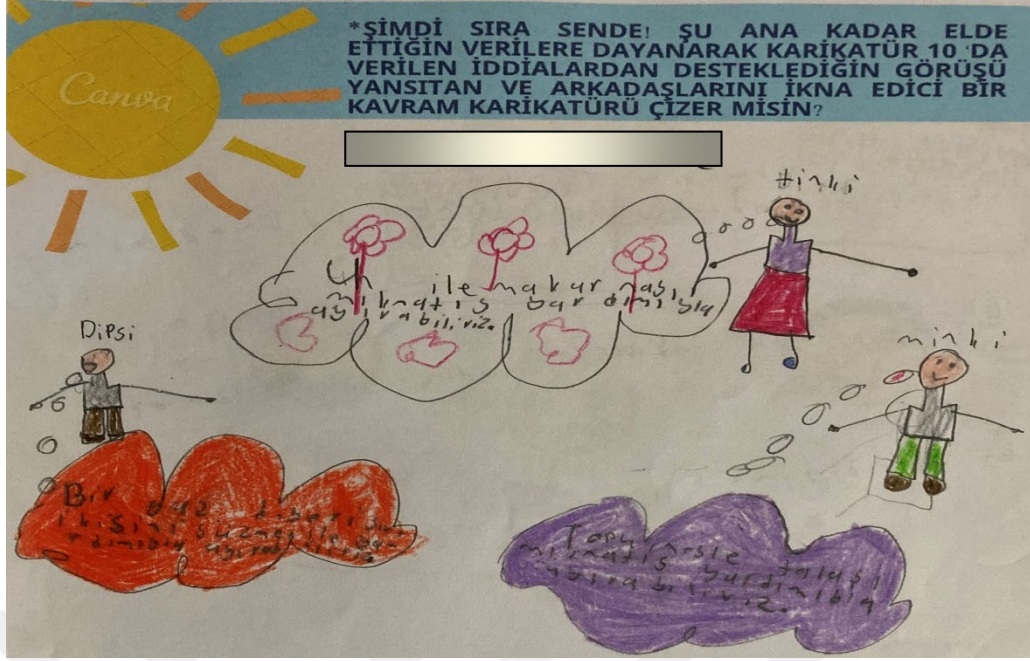 *ŞİMDİ SIRA SENDE! ŞU ANA KADAR ELDE
ETTİĞİN VERİLERE DAYANARAK KARİKATÜR 10 'DA
VERİLEN İDDİALARDAN DESTEKLEDİĞİN GÖRÜŞÜ
YANSITAN VE ARKADAŞLARINI İKNA EDİCİ BİR
KAVRAM KARİKATÜRÜ ÇİZER MİSİN?
Canva
tinki
Un ile makarnası
mıknatıs yardımıyla
ayırabiliriz.
Dipsi
minki
Bir
ikisini süzme
ayıra
Toplu iğnesle talaşı
mıknatıs yardımıyla
ayırabiliriz.